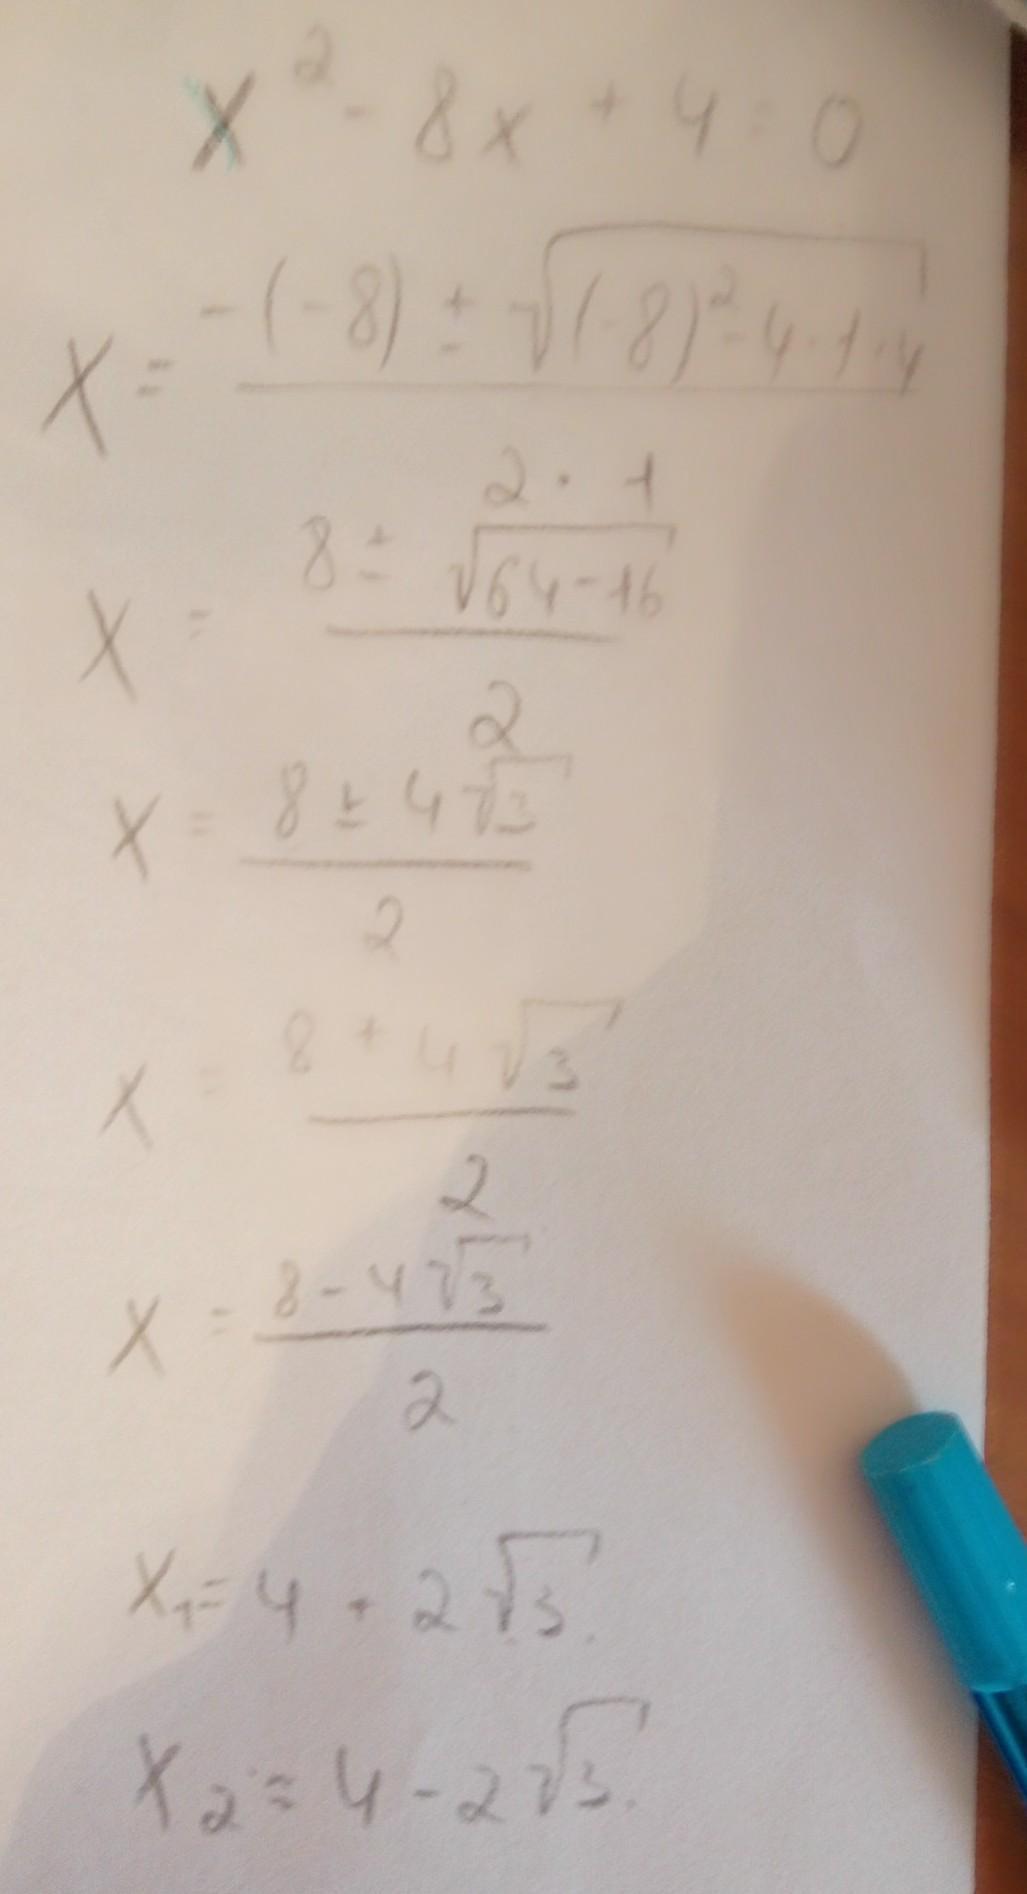 x² - 8x + 4 = 0
x = (-(-8) ± √((-8)² - 4·1·4)) / (2·1)
x = (8 ± √(64-16)) / 2
x = (8 ± 4√3) / 2
x = (8 + 4√3) / 2
x = (8 - 4√3) / 2
x₁ = 4 + 2√3.
x₂ = 4 - 2√3.